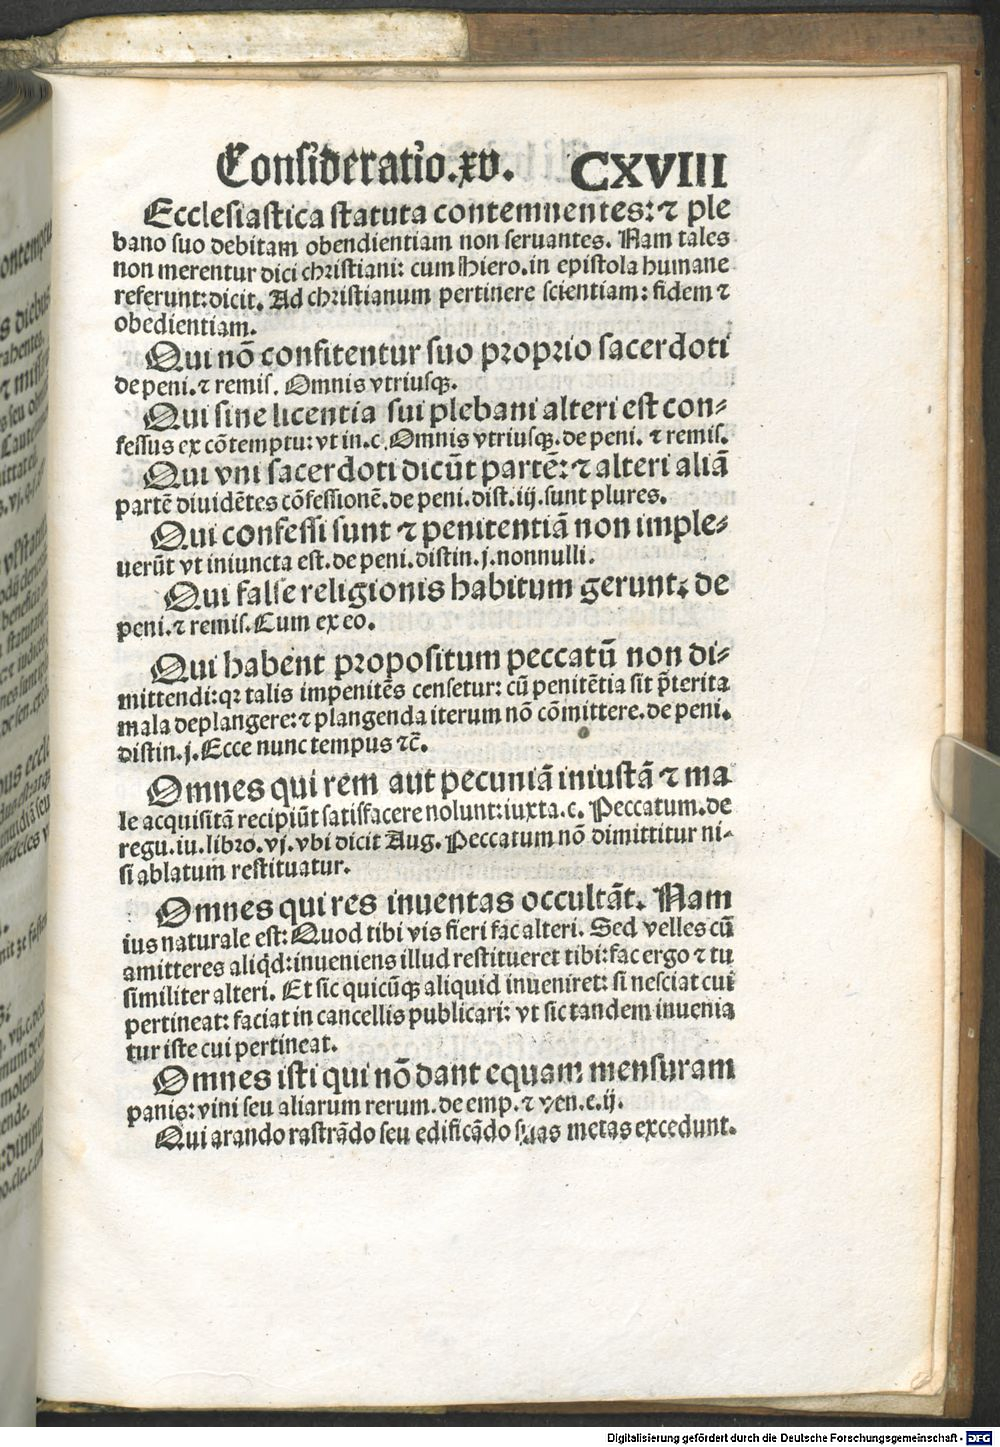 Consideratio.xv. CXVIII
Ecclesiastica statuta contemnentes: ⁊ ple
bano suo debitam obendientiam non seruantes. Nam tales
non merentur dici christiani: cum Hiero. in epistola humane
referunt: dicit. Ad christianum pertinere scientiam: fidem ⁊
obedientiam.
Qui nō confitentur suo proprio sacerdoti
de peni. ⁊ remis. Omnis vtriusqꝫ.
Qui sine licentia sui plebani alteri est con⸗
fessus ex cōtemptu: vt in. c. Omnis vtriusqꝫ. de peni. ⁊ remis.
Qui vni sacerdoti dicūt partē: ⁊ alteri aliā
partē diuidētes cōfessionē. de peni. dist. iij. sunt plures.
Qui confessi sunt ⁊ penitentiā non imple⸗
uerūt vt iniuncta est. de peni. distin. j. nonnulli.
Qui false religionis habitum gerunt; de
peni. ⁊ remis. Cum ex eo.
Qui habent propositum peccatū non di⸗
mittendi: qꝛ talis impenitēs censetur: cū penitētia sit p̄terita
mala deplangere: ⁊ plangenda iterum nō cōmittere. de peni.
distin. j. Ecce nunc tempus ⁊c̄.
Omnes qui rem aut pecuniā iniustā ⁊ ma
le acquisitā recipiūt satisfacere nolunt: iuxta. c. Peccatum. de
regu. iu. libro. vj. vbi dicit Aug. Peccatum nō dimittitur ni⸗
si ablatum restituatur.
Omnes qui res inuentas occultāt. Nam
ius naturale est: Quod tibi vis fieri fac alteri. Sed velles cū
amitteres aliqd̄: inueniens illud restitueret tibi: fac ergo ⁊ tu
similiter alteri. Et sic quicūqꝫ aliquid inueniret: si nesciat cui
pertineat: faciat in cancellis publicari: vt sic tandem inuenia
tur iste cui pertineat.
Omnes isti qui nō dant equam mensuram
panis: vini seu aliarum rerum. de emp. ⁊ ven. c. ij.
Qui arando rastrādo seu edificādo suas metas excedunt.
Digitalisierung gefördert durch die Deutsche Forschungsgemeinschaft - DFG